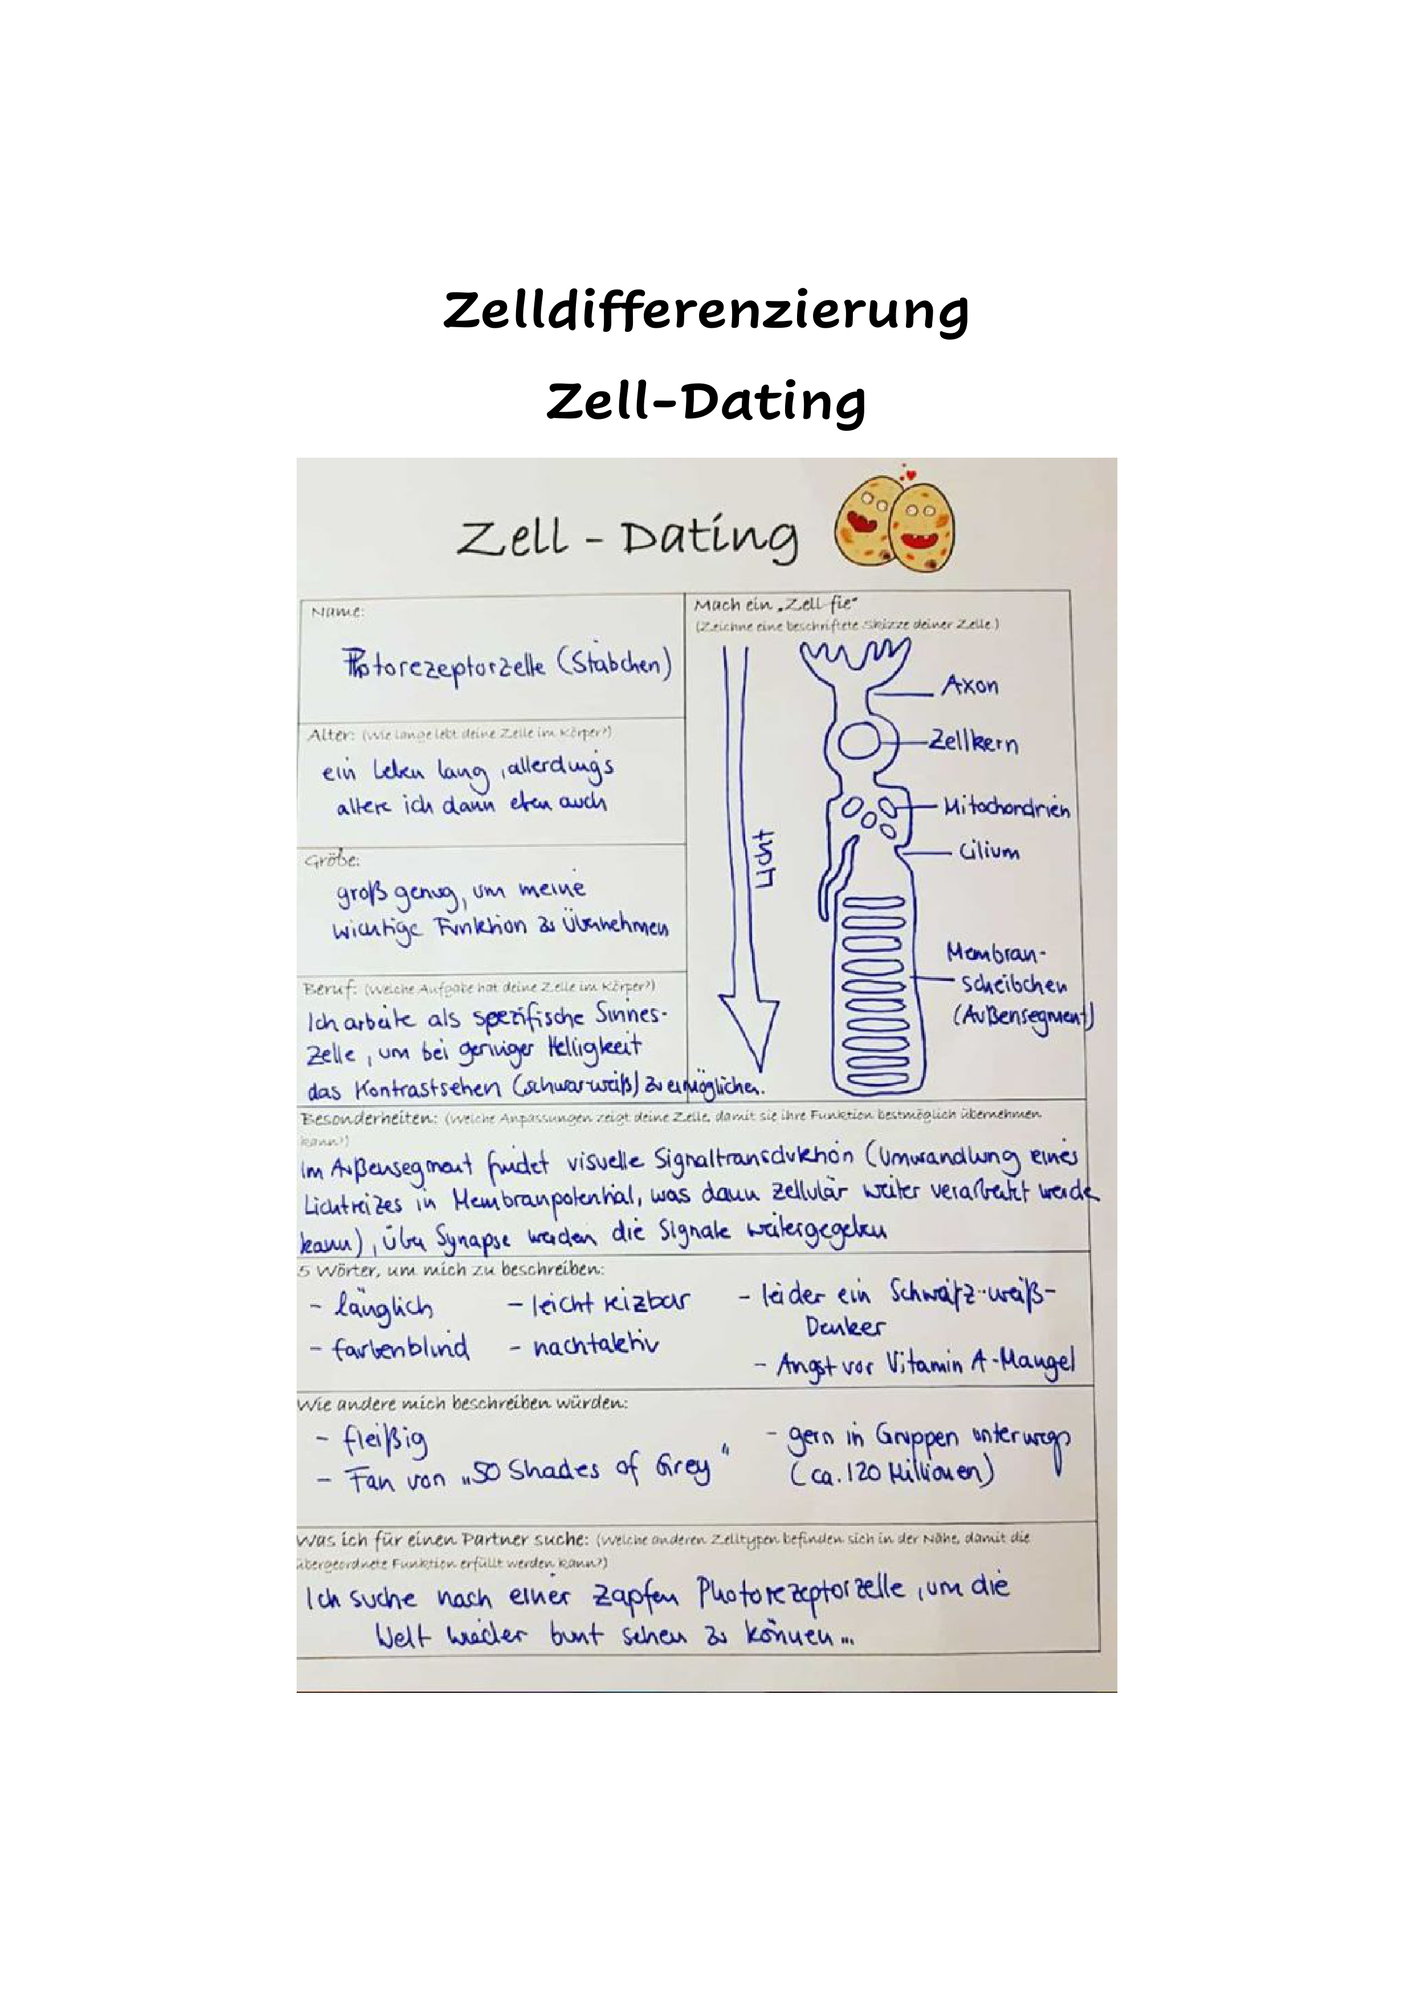 Zelldifferenzierung
Zell-Dating
Zell - Dating
Name:
Photorezeptorzelle (Stäbchen)
Alter: (Wie lange lebt deine Zelle im Körper?)
ein Leben lang, allerdings
altere ich dann eben auch
Größe:
groß genug, um meine
wichtige Funktion zu übernehmen
Beruf: (Welche Aufgabe hat deine Zelle im Körper?)
Ich arbeite als spezifische Sinnes-
zelle, um bei geringer Helligkeit
das Kontrastsehen (schwarweiß) zu ermöglichen.
Mach ein „Zell fie"
(Zeichne eine beschriftete Skizze deiner Zelle.)
Licht
Axon
Zellkern
Mitochondrien
Cilium
Membran-
scheibchen
(Außensegment)
Besonderheiten: (Welche Anpassungen zeigt deine Zelle, damit sie ihre Funktion bestmöglich übernehmen
kann?)
Im Außensegment findet visuelle Signaltransduktion (Umwandlung eines
Lichtreizes in Membranpotenhial, was dann zellulär weiter verarbeitet werde
kann), über Synapse werden die Signale weitergegeben
5 Wörter, um mich zu beschreiben:
- länglich
- farbenblind
- leicht reizbar
- nachtaktiv
- leider ein Schwarz-weiß-
Denker
- Angst vor Vitamin A-Mangel
Wie andere mich beschreiben würden:
- fleißig
- Fan von „50 Shades of Grey"
- gern in Gruppen unterwegs
(ca. 120 Millionen)
Was ich für einen Partner suche: (Welche anderen Zelltypen befinden sich in der Nähe, damit die
übergeordnete Funktion erfüllt werden kann?)
Ich suche nach einer Zapfen Photorezeptorzelle, um die
Welt wieder bunt sehen zu können...